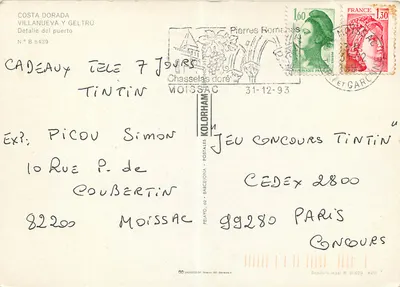 COSTA DORADA
VILLANUEVA Y GELTRU
Detalle del puerto
Pierres Romanes
Chasselas doré
MOISSAC 31-12-93
1,60
1,30
CADEAUX TELE 7 JOURS
TINTIN
EXP: PICOU SIMON
10 RUE P. de
COUBERTIN
82200 MOISSAC
KOLORHAM
"JEU CONCOURS TINTIN"
CEDEX 2800
99280 PARIS
CONCOURS